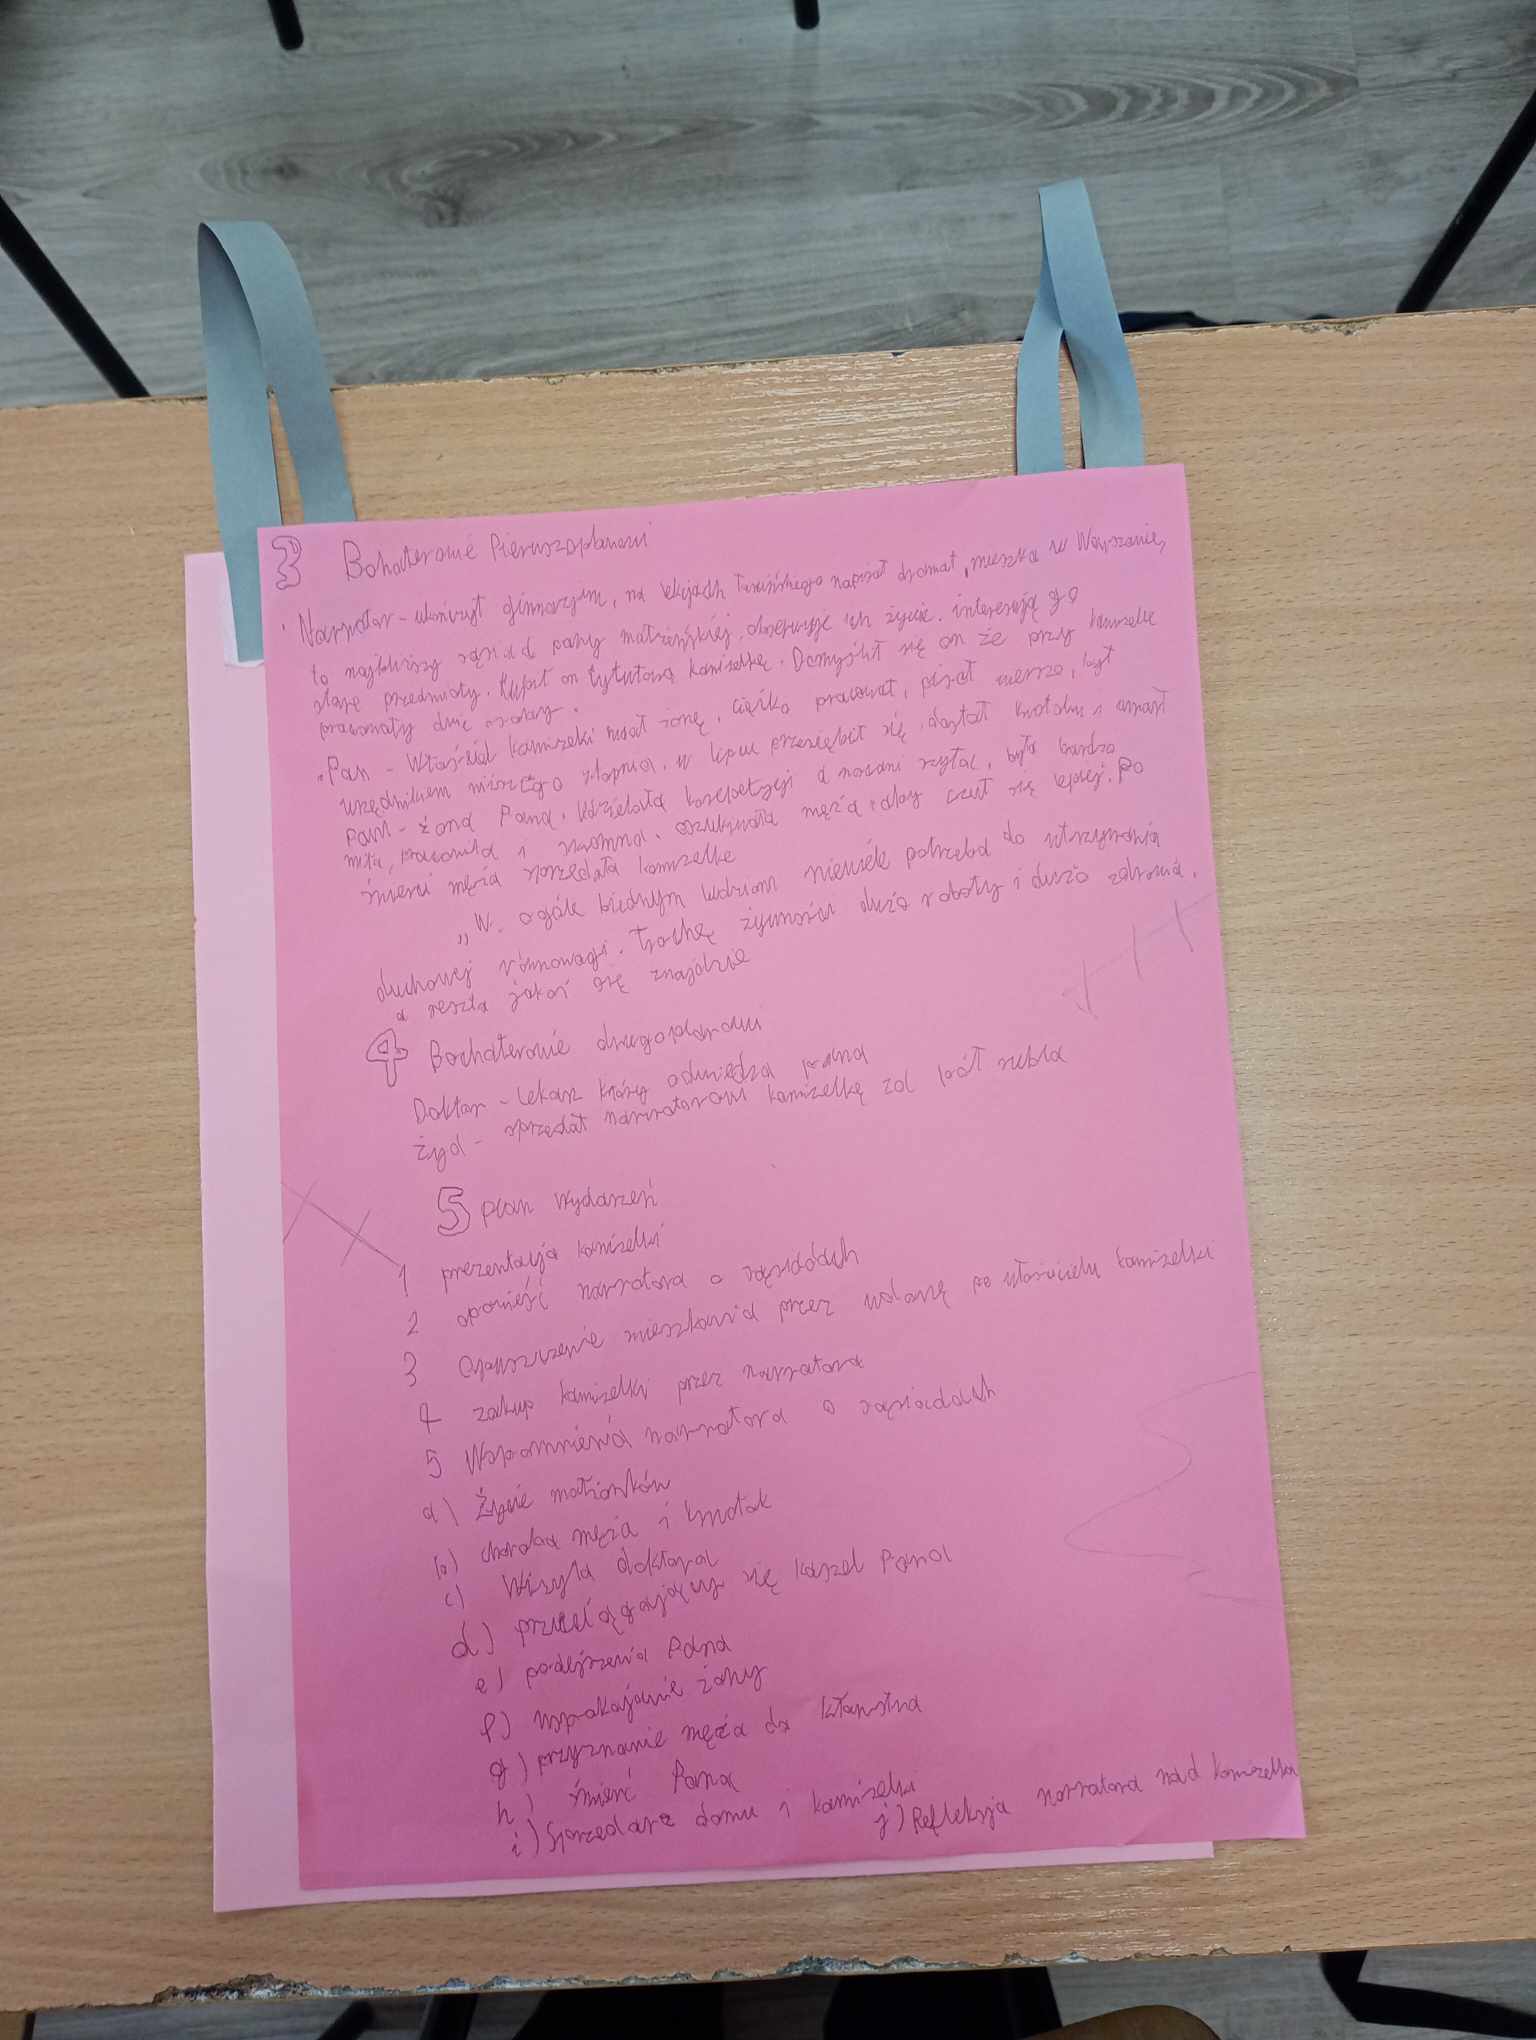 3 Bohaterowie Pierwszoplanowi
Narrator - ukończył gimnazjum, na lekcjach łacińskiego napisał dramat, mieszka w Warszawie,
to najbliższy sąsiad pary małżeńskiej, obserwuje ich życie. interesują go
stare przedmioty. Kupił on tytułową kamizelkę. Domyślił się on że przy kamizelce
pracowały dwie osoby.
Pan - Właściciel kamizelki miał żonę, ciężko pracował, pisał wiersze, był
urzędnikiem niższego stopnia. w lipcu przeziębił się, dostał krwotoku i umarł
Pani - żona Pana. Udzielała korepetycji a nocami szyła, była bardzo
miła, pracowita i skromna. oszukiwała męża aby czuł się lepiej. Po
śmierci męża sprzedała kamizelkę
„W ogóle biednym ludziom niewiele potrzeba do utrzymania
duchowej równowagi. Trochę żywności dużo roboty i dużo zdrowia.
a reszta jakoś się znajdzie
4 Bochaterowie drugoplanowi
Doktor - lekarz który odwiedza pana
Żyd - sprzedał narratorowi kamizelkę za pół rubla
5 plan wydarzeń
1 prezentacja kamizelki
2 opowieść narratora o sąsiadach
3 Opuszczenie mieszkania przez wdowę po właścicielu kamizelki
4 zakup kamizelki przez narratora
5 Wspomnienia narratora o sąsiadach
a) Życie małżonków
b) choroba męża i krwotok
c) Wizyta doktora
d) przeciągający się kaszel Pana
e) podejrzenia Pana
f) uspokajanie żony
g) przyznanie męża do kłamstwa
h) śmierć Pana
i) Sprzedarz domu i kamizelki
j) Refleksja narratora nad kamizelką